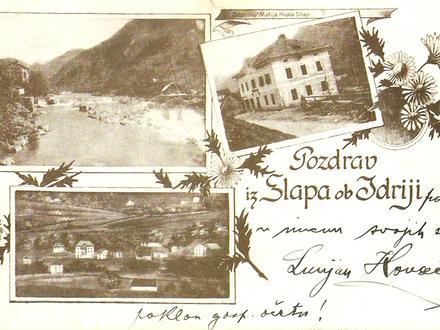 Gostilna Matija Hvala Slap
Pozdrav
iz Slapa ob Idriji
svojih
Lucijan
poklon gosp. očetu!